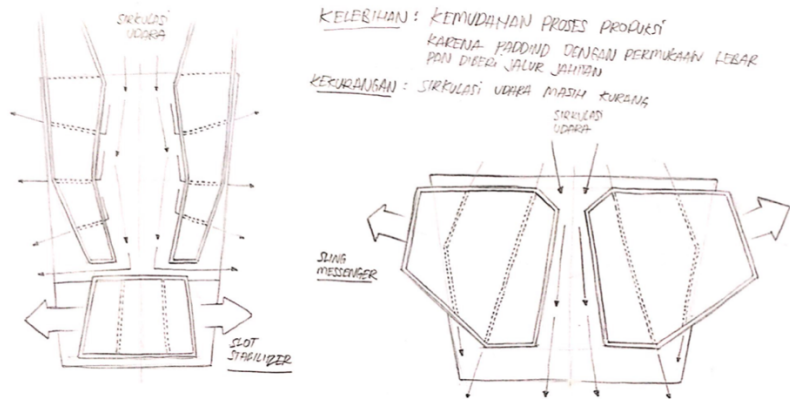 SIRKULASI
UDARA
KELEBIHAN : KEMUDAHAN PROSES PRODUKSI
KARENA PADDIND DENGAN PERMUKAAN LEBAR
DAN DIBERI JALUR JAHITAN
KEKURANGAN : SIRKULASI UDARA MASIH KURANG
SIRKULASI
UDARA
SLING
MESSENGER
SLOT
STABILIZER